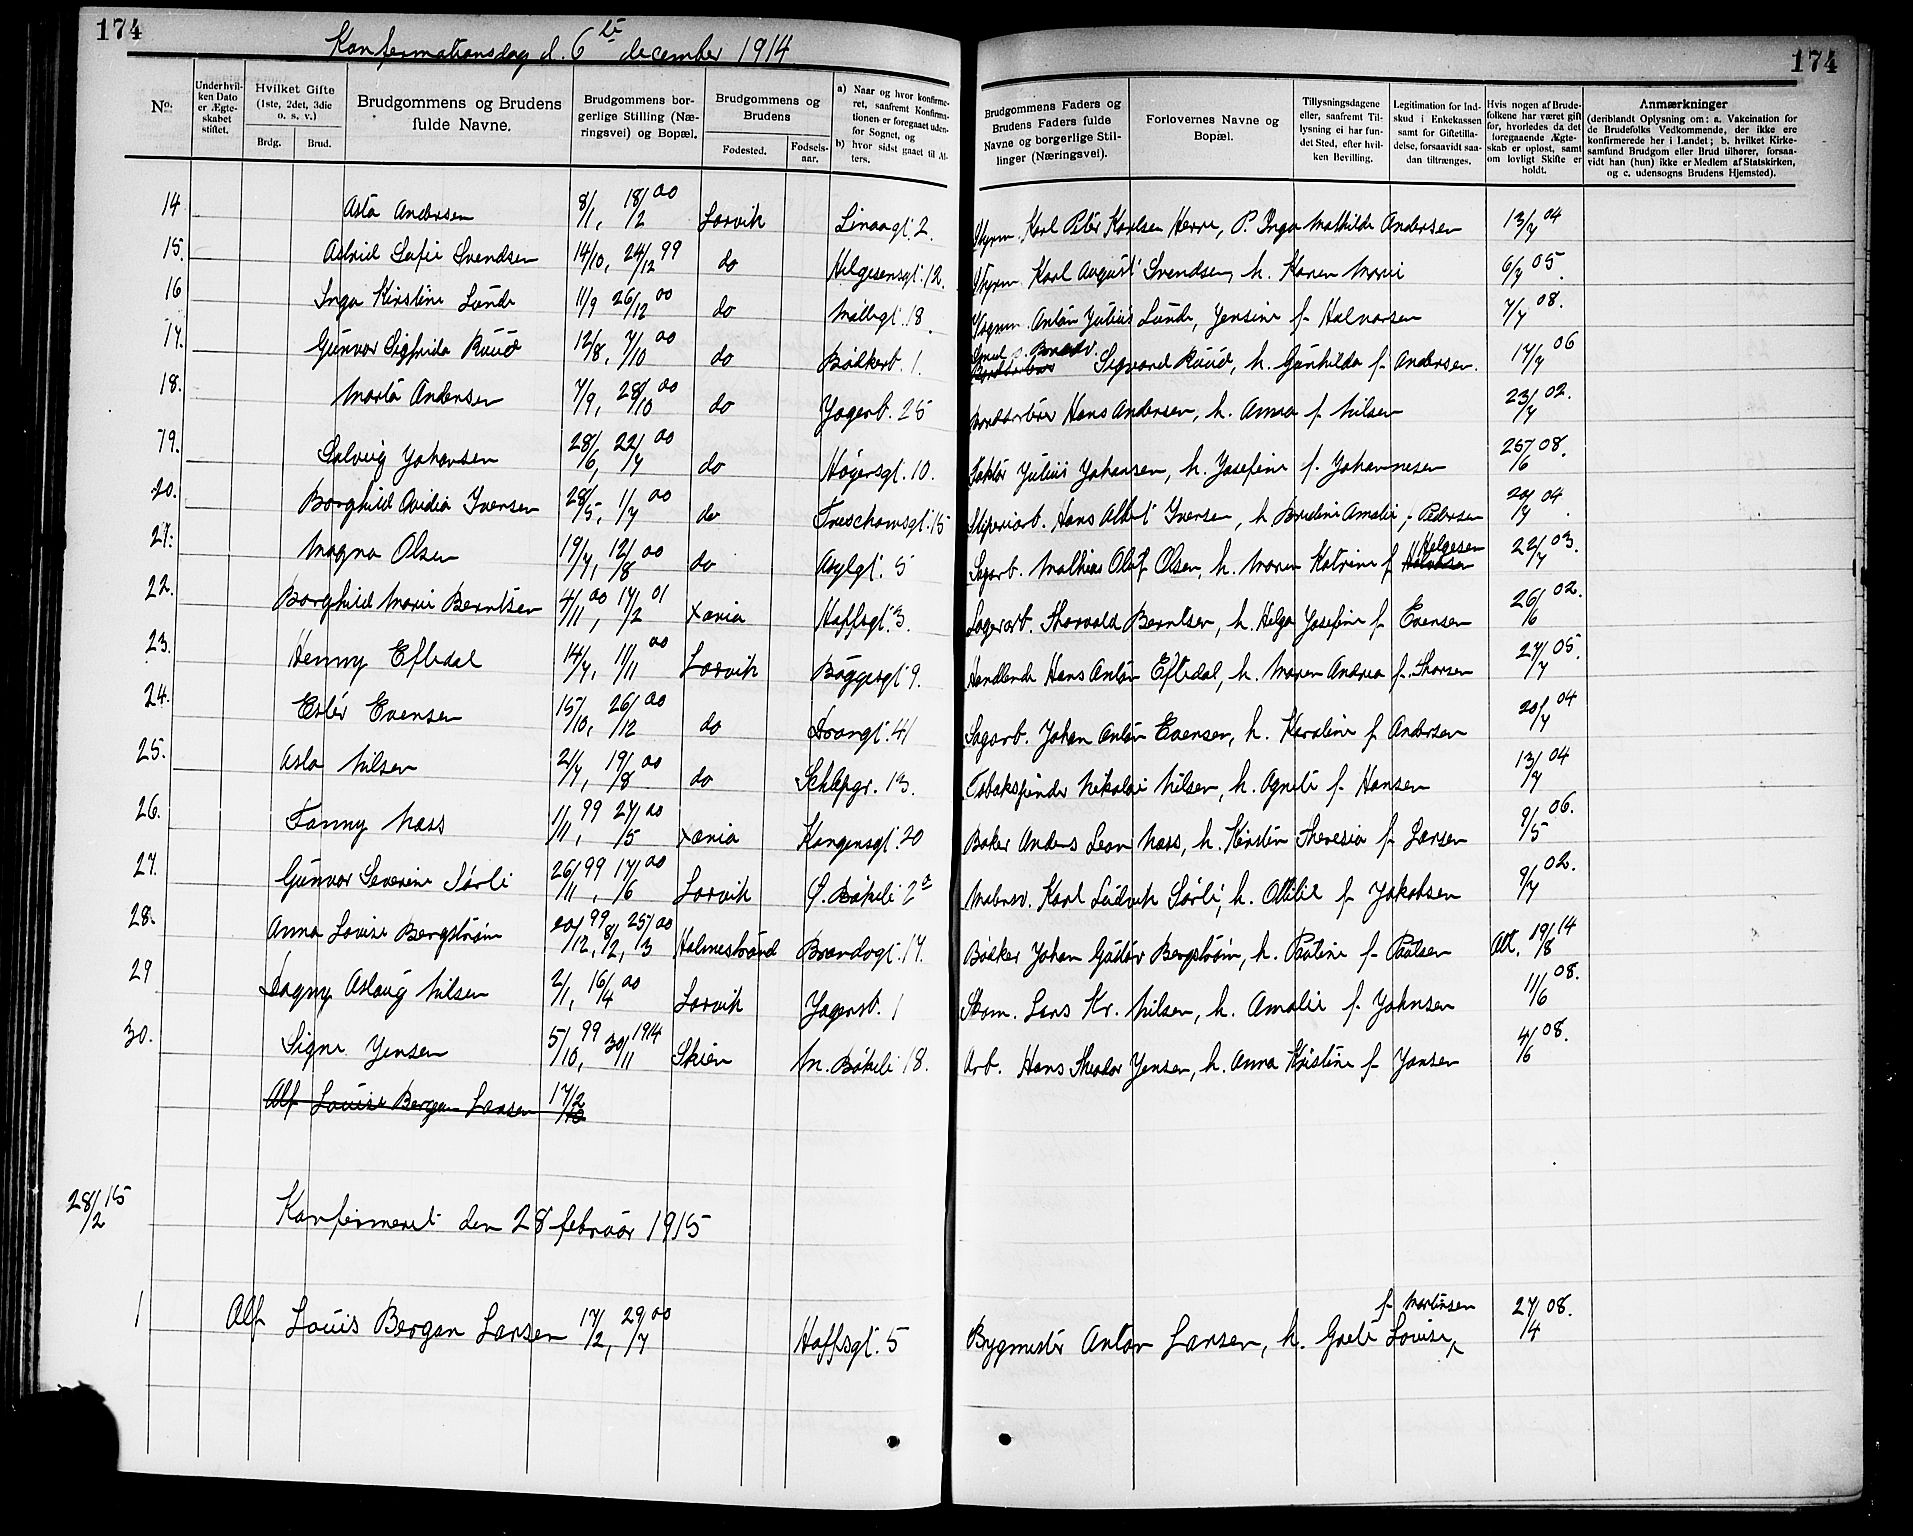 174
174
Konfermationsdag d. 6te december 1914
No.
Under hvilken Dato er Ægteskabet stiftet.
Hvilket Gifte (1ste, 2det, 3die o. s. v.)
Brdg.
Brud.
Brudgommens og Brudens fulde Navne.
Brudgommens borgerlige Stilling (Næringsvei) og Bopæl.
Brudgommens og Brudens
Fødested.
Fødselsaar.
a) Naar og hvor konfirmeret, saafremt Konfirmationen er foregaaet udenfor Sognet, og
b) hvor sidst gaaet til Alters.
Brudgommens Faders og Brudens Faders fulde Navne og borgerlige Stillinger (Næringsvei).
Forlovernes Navne og Bopæl.
Tillysningsdagene eller, saafremt Tillysning ei har fundet Sted, efter hvilken Bevilling.
Legitimation for Indskud i Enkekassen samt for Giftetilladelse, forsaavidt saadan tiltrænges.
Hvis nogen af Brudefolkene har været gift før, hvorledes da det foregaaende Ægteskab er opløst, samt om lovligt Skifte er holdt.
Anmærkninger
(deriblandt Oplysning om: a. Vakcination for de Brudefolks Vedkommende, der ikke ere konfirmerede her i Landet; b. hvilket Kirkesamfund Brudgom eller Brud tilhører, forsaavidt han (hun) ikke er Medlem af Statskirken, og c. udensogns Brudens Hjemsted).
14 Asta Andersen 8/1, 18/2 00 Larvik Linaagt. 2. Styrm. Karl Peter Karlsen Herre, P. Inga Mathilde Andersen 13/7 04
15. Astrid Sofie Svendsen 14/10, 24/12 99 do Helgesensgt. 12. Styrm. Karl August Svendsen, h. Karen Marie 6/7 05.
16 Inga Kirstine Lunde 11/9 26/12 00 do Møllegt. 18. Vognm. Anton Julius Lunde, Jensine f. Halvorsen 7/7 08.
17. Gunvor Sigfrida Ruud 12/8, 7/10 00 do Bøkkerb. 1. Sigvard Ruud, h. Gunhilda f. Andersen. 17/7 06
18. Marta Andersen 7/9, 28/10 00 do Jagerb. 25 Hans Andersen, h. Anna f. Nilsen 23/7 02.
19. Solveig Johansen 28/6, 22/7 00 do Høyersgt. 10. Faktor Julius Johansen, h. Josefine f. Johannesen 25/6 08.
20. Borghild Ovidia Iversen 28/5, 1/7 00 do Treschowsgt. 15 Sliperiarb. Hans Albert Iversen, h. Bredine Amalie f. Pedersen 20/7 04.
21. Magna Olsen 19/7, 12/8 00 do Asylgt. 5 Sagarb. Mathias Olaf Olsen, h. Maren Katrine f. Halvorsen Helgesen 22/7 03.
22. Borghild Marie Berntsen 4/11 00, 17/2 01 Xania Hoffsgt. 3. Lagerarb. Thorvald Berntsen, h. Helga Josefine f. Evensen 26/6 02.
23. Henny Eftedal 14/7, 11/11 00 Larvik Bøggesgt 9. Handlende Hans Anton Eftedal, h. Maren Andrea f. Thorsen 27/7 05.
24. Ester Evensen 15/10, 26/12 00 do Trangt. 41 Sagarb. Johan Anton Evensen, h. Karoline f. Andersen 20/7 04
25. Asta Nilsen 2/7, 19/8 00 do 13. Tobakspinder Nikolai Nilsen, h. Agnete f. Hansen 13/7 04
26. Fanny Næss 1/11 99, 27/5 00 Xania Kongensgt. 20 Baker Anders Leon Næss, h. Kirstin Theresia f. Larsen 9/5 06.
27. Gunvor Severine Sørli 26/11 99, 17/6 00 Larvik Ø. Bøkeli 2a Malersv. Karl Ludvik Sørli, h. Ottilie f. Jakobsen 9/7 02.
28. Anna Lovise Bergstrøm 20/12 99, 8/2, 25/3 00 Holmestrand Brandvgt. 17. Bøkker Johan Gustav Bergstrøm, h. Pauline f. Paulsen Att. 19/8 14
29 Dagny Aslaug Nilsen 2/1, 16/4 00 Larvik Jagerb. 1 Skom. Lars Kr. Nilsen, h. Amalie f. Johnsen 11/6 08.
30. Signe Jensen 5/10 99, 30/11 1914 Skien N. Bøkeli 18. Arb. Hans Theodor Jensen, h. Anna Kristine f. Jansen 4/6 08.
Alf Louise Bergan Larsen 17/2
28/2 15 Konfermeret den 28 februar 1915
f. Martinsen
1 Alf Louis Bergan Larsen 17/2, 29/7 00 Hoffsgt. 5 Bygmester Anton Larsen, h. Grete Lovise, 27/4 08.